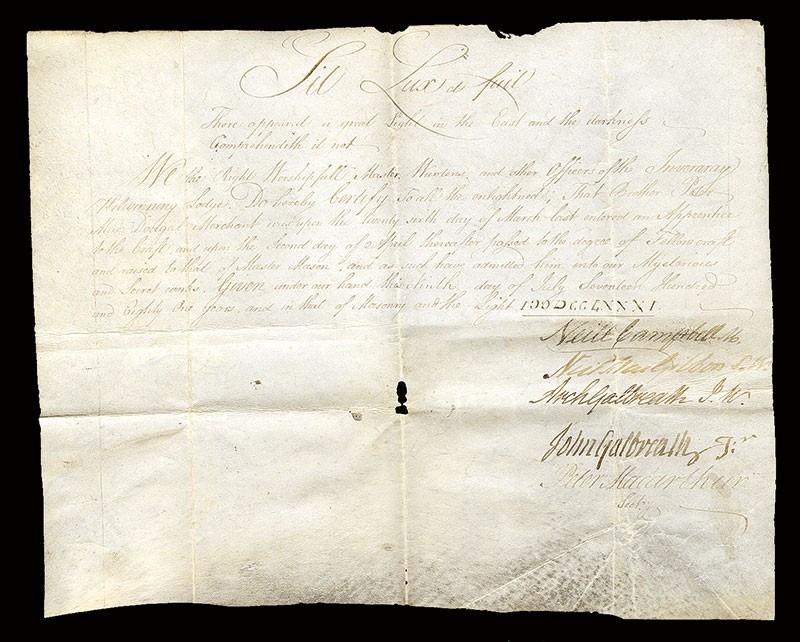 Sit Lux & fuit
There appeared a great Light in the East and the darkness
Comprehendith it not
We the Right Worshipfull Master, Wardens, and other Officers of the Inveraray
Lodge, Do hereby Certify To all the enlightened, That Brother Peter
Mac Dougal Merchant was upon the twenty sixth day of March last entered an Apprentice
to the Craft, and upon the Second day of April thereafter passed to the degree of Fellowcraft
and raised to that of Master Mason, and as such have admitted him into our Mysterious
and Secret works. Given under our hand this day of July Seventeen Hundred
and Eighty One years, and in that of Masonry and the Light
Neill Campbell M.
Neil S. W.
Arch Galbreath J. W.
John Galbreath Tr
Peter Macarthur
Secty